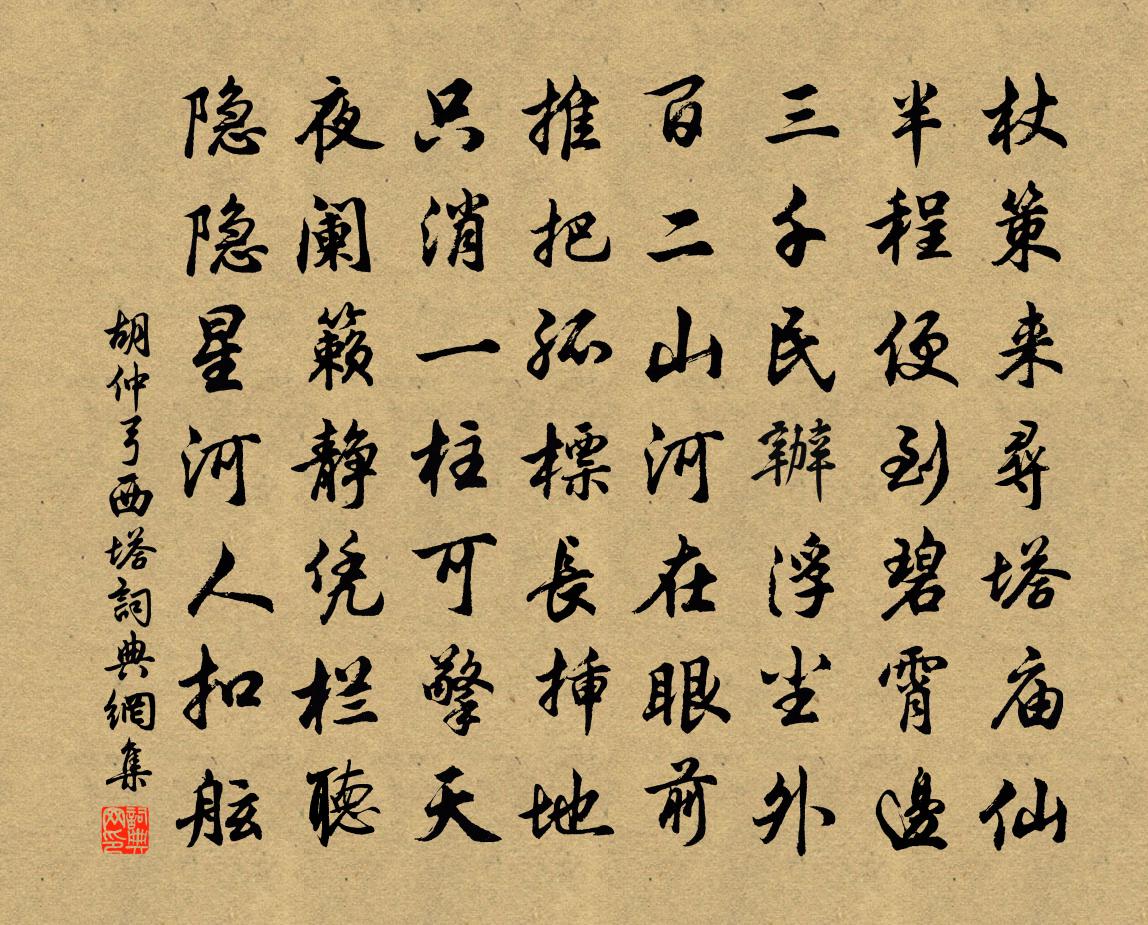 杖策来尋塔庙仙
半程便到碧霄邊
三千民辦浮尘外
百二山河在眼前
推把孤標長揷地
只消一柱可擎天
夜阑籁静凭栏聽
隐隐星河人扣舷
胡仲弓西塔詞典網集
詞典網印